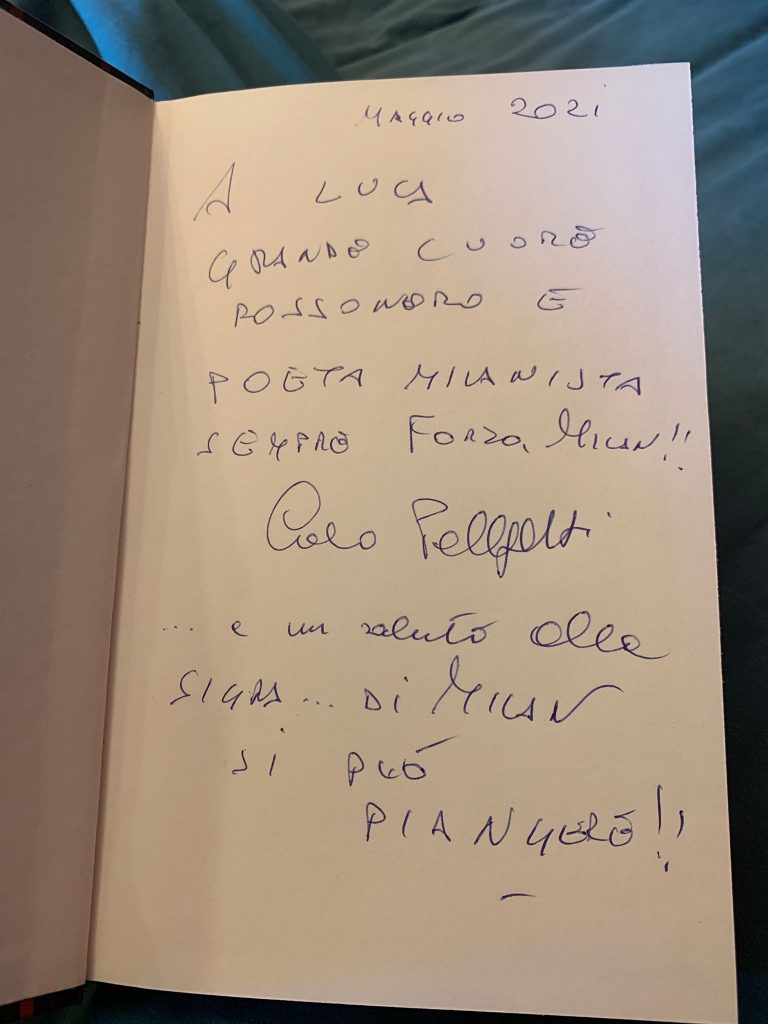 MAGGIO 2021
A LUCA
GRANDE CUORE
ROSSONERO E
POETA MILANISTA
SEMPRE FORZA MILAN!!
Carlo Pellegatti
... e un saluto alla
SIGRA... DI MILAN
SI PUÓ
PIANGERE!!